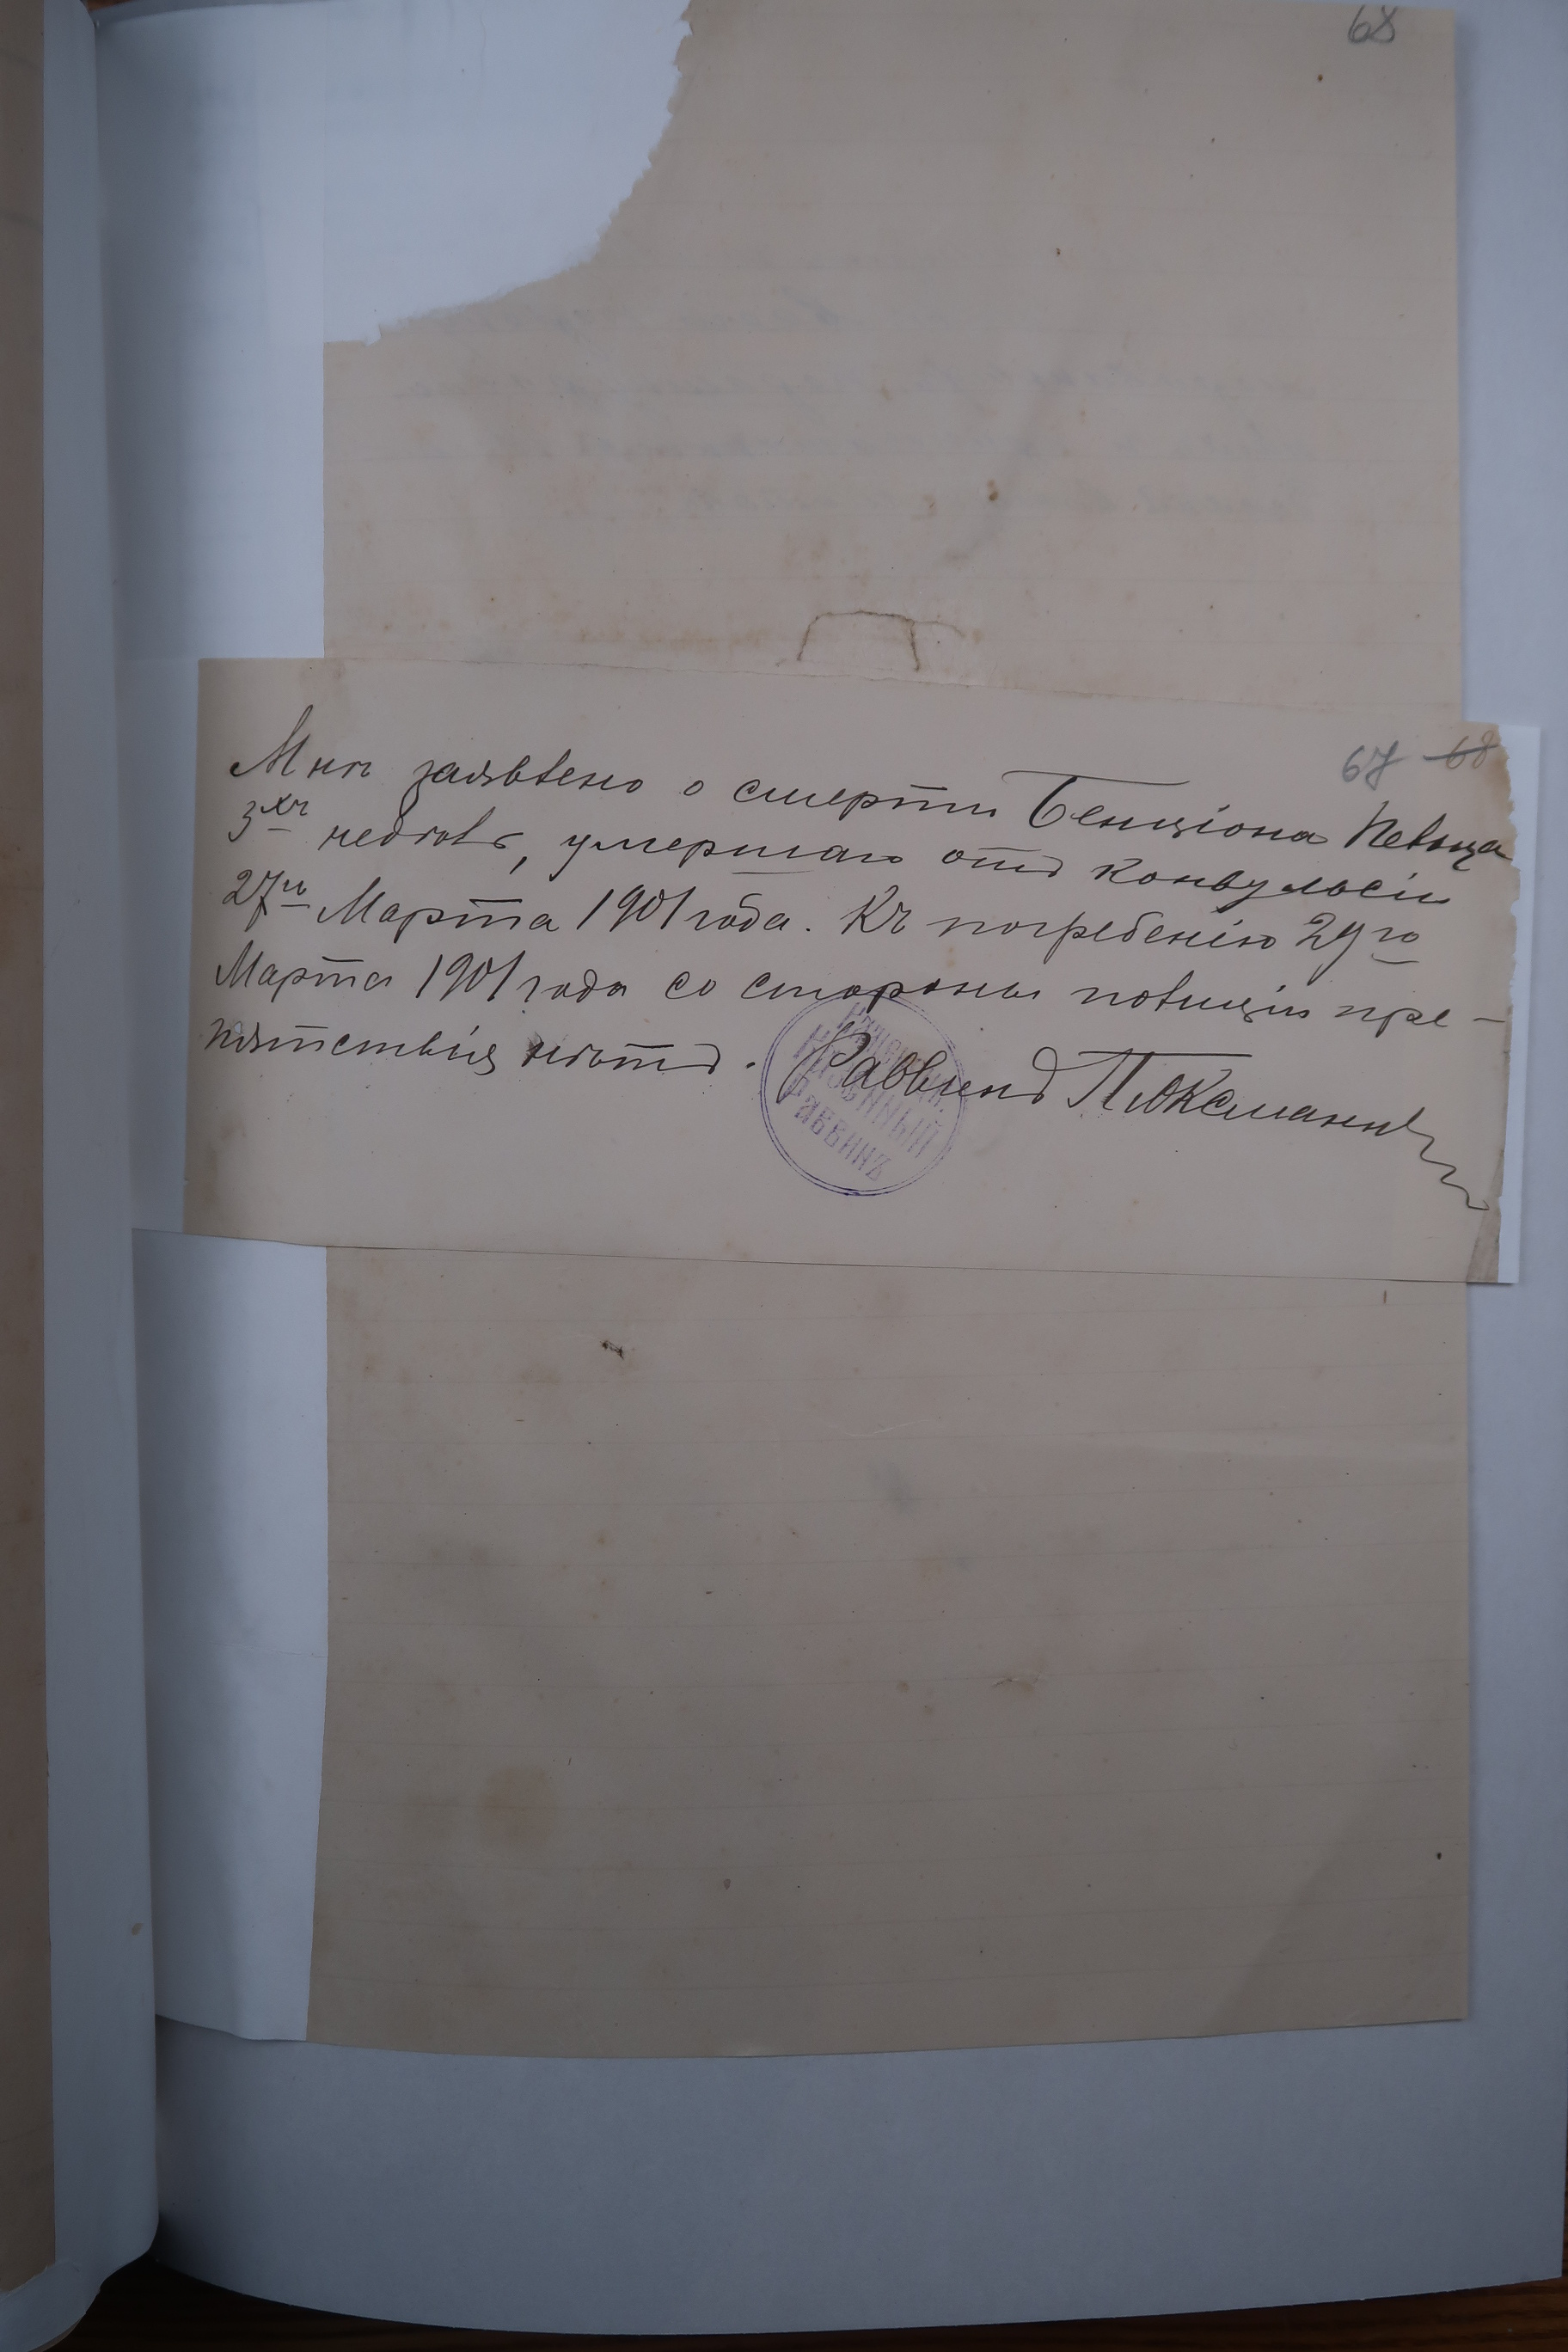 68
67 68
Мнѣ заявлено о смерти Бенціона Певзца
3хъ недѣль, умершаго отъ конвульсіи
27го Марта 1901 года. Къ погребенію 29го
Марта 1901 года со стороны полиціи пре-
пятствія нѣтъ. Раввинъ П. Юксманъ
КАЗЕННЫЙ
РАВВИНЪ